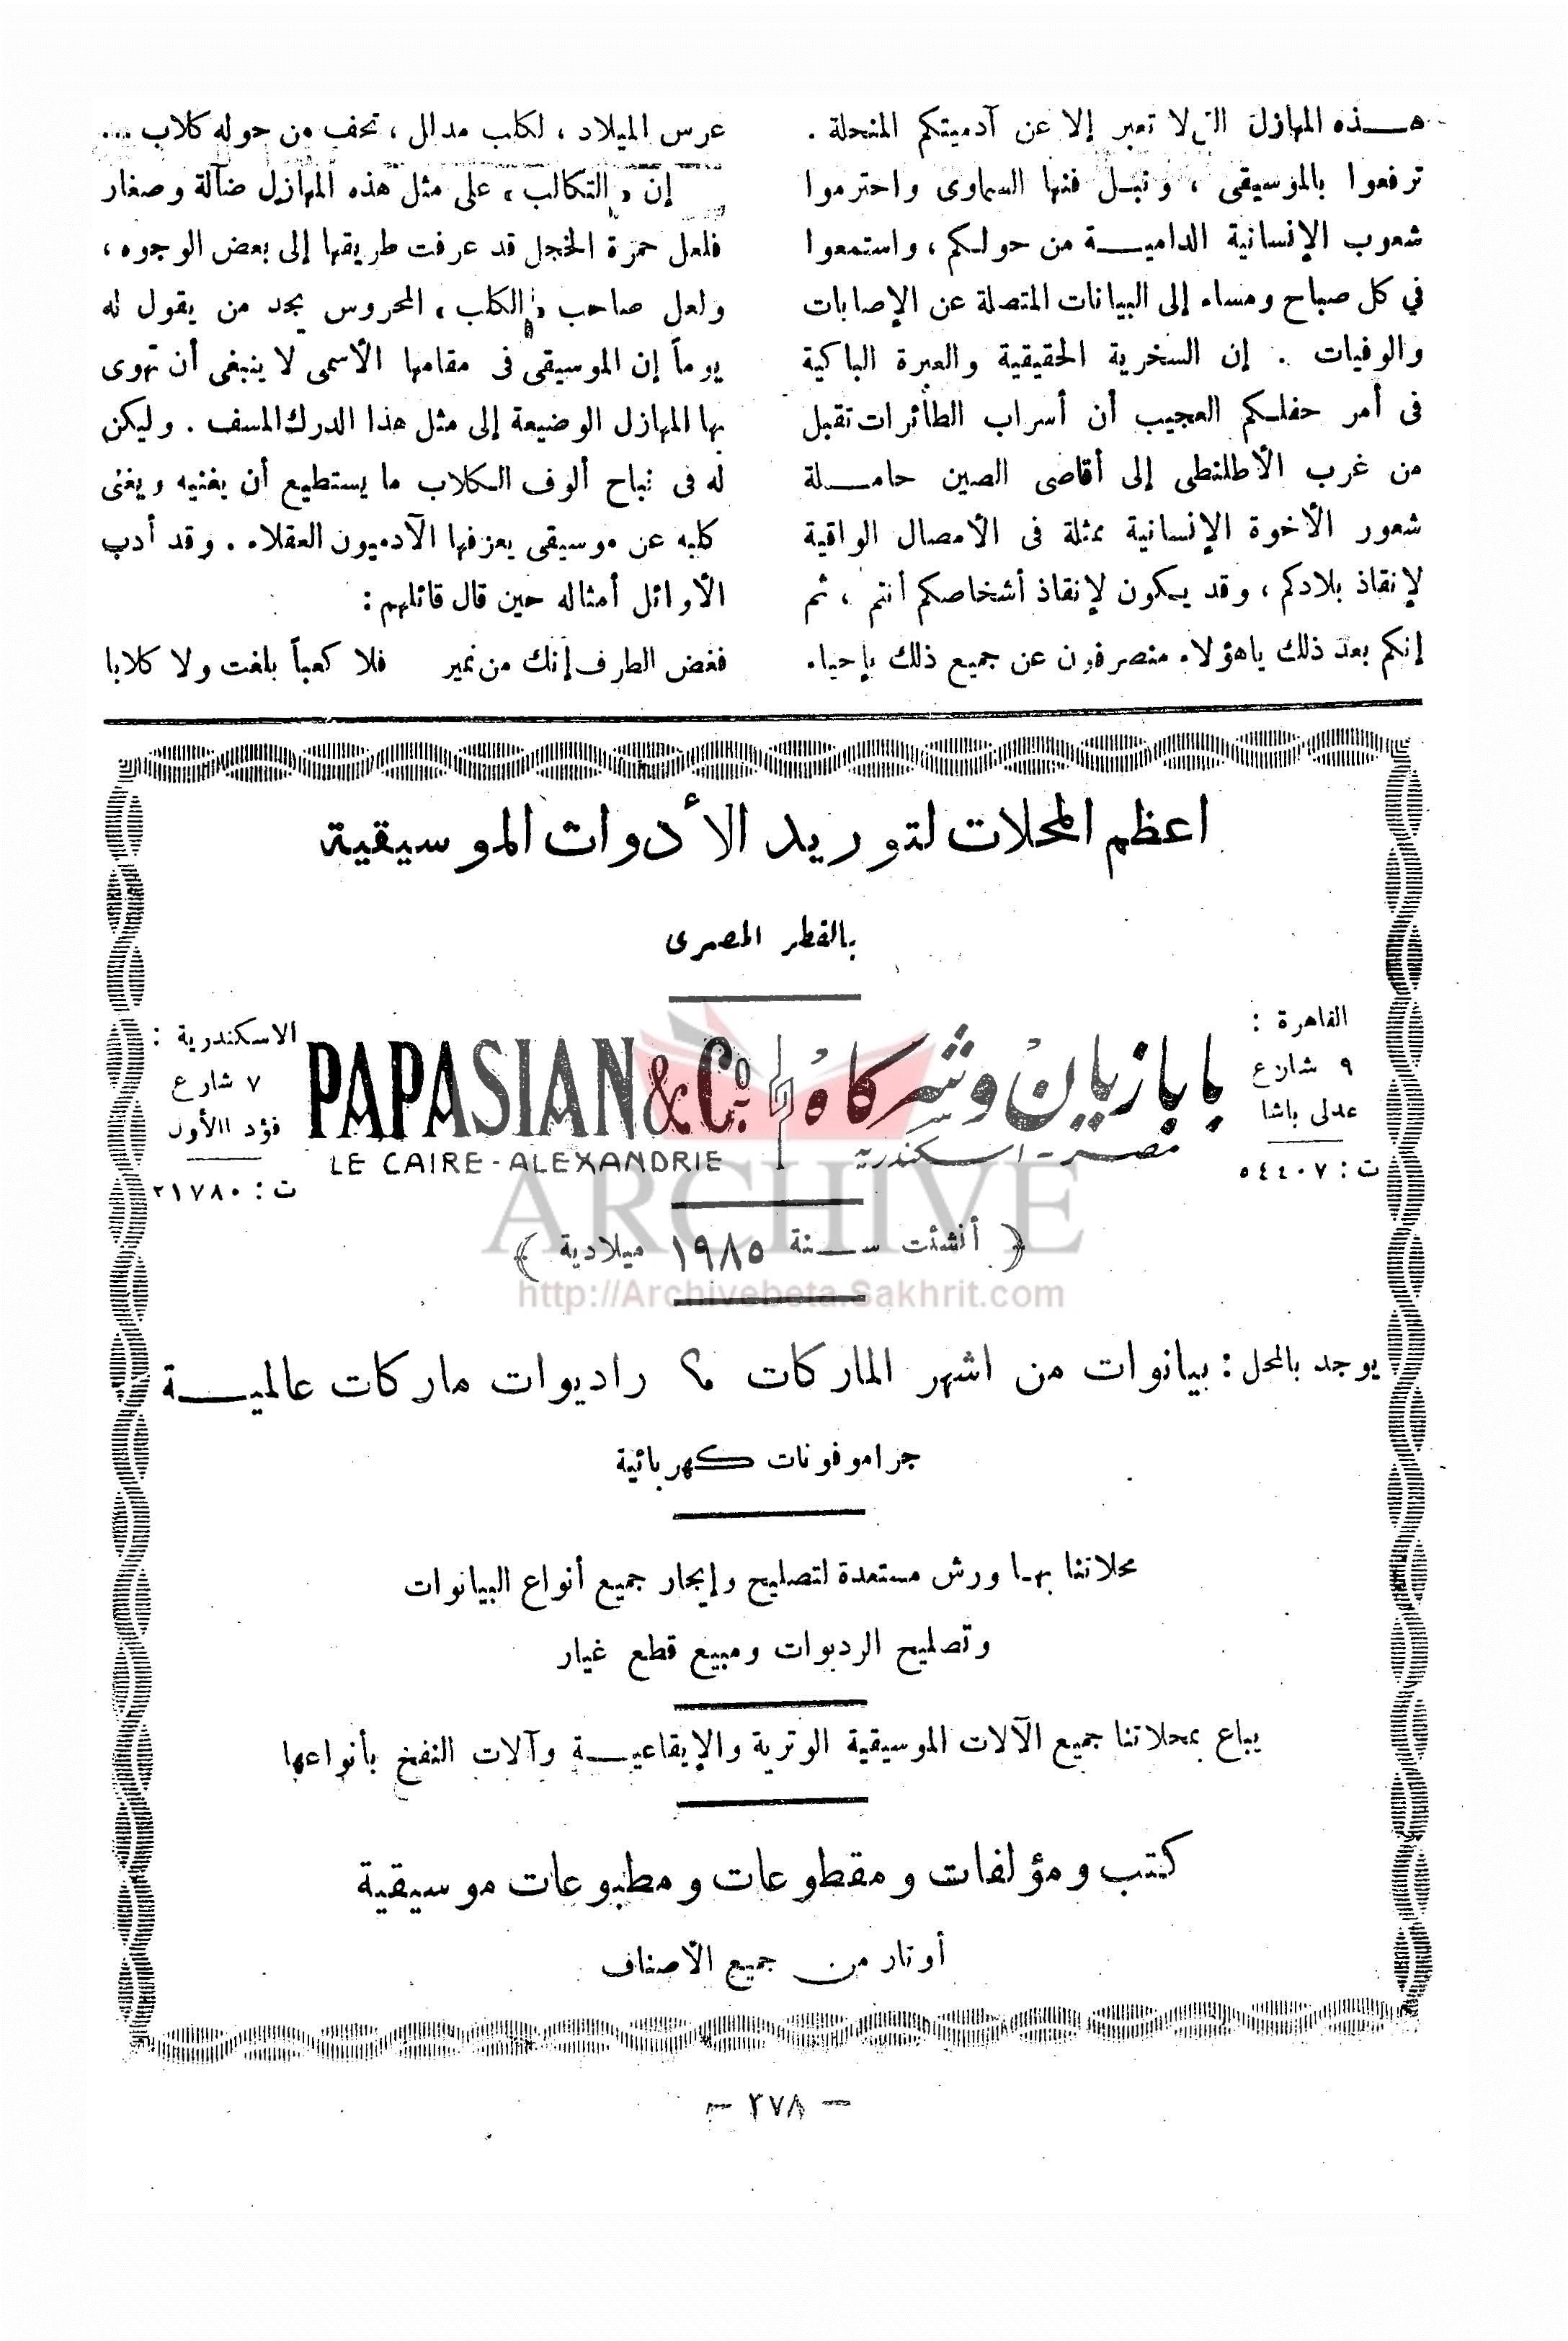 هـــذه المهازل التى لا تعبر إلا عن آدميتكم المنحلة .
ترفعوا بالموسيقى ، ونبل فنها السماوى واحترموا
شعوب الإنسانية الداميــة من حولكم ، واستمعوا
في كل صباح ومساء إلى البيانات المتصلة عن الإصابات
والوفيات . إن السخرية الحقيقية والعبرة الباكية
فى أمر حفلكم العجيب أن أسراب الطائرات تقبل
من غرب الأطلنطى إلى أقاصى الصين حامـــلة
شعور الأخوة الإنسانية ممثلة فى الأمصال الواقية
لإنقاذ بلادكم ، وقد يكون لإنقاذ أشخاصكم أنتم ، ثم
إنكم بعد ذلك ياهؤلاء منصرفون عن جميع ذلك بإحياء
عرس الميلاد ، لكلب مدلل ، تحف من حوله كلاب ...
إن « التكالب » على مثل هذه المهازل ضآلة وصغار
فلعل حمرة الخجل قد عرفت طريقها إلى بعض الوجوه ،
ولعل صاحب « الكلب » المحروس يجد من يقول له
يوماً إن الموسيقى فى مقامها الأسمى لا ينبغى أن تهوى
بها المهازل الوضيعة إلى مثل هذا الدرك المسف . وليكن
له فى نباح ألوف الكلاب ما يستطيع أن يغنيه ويغنى
كلبه عن موسيقى يعزفها الآدميون العقلاء . وقد أدب
الأوائل أمثاله حين قال قائلهم :
فغض الطرف إنك من نمير فلا كعباً بلغت ولا كلابا
اعظم المحلات لتوريد الأدوات الموسيقية
بالقطر المصرى
القاهرة :
٩ شارع
عدلى باشا
ت : ٥٤٤٠٧
بابازيان وشركاه
مصر - اسكندرية
PAPASIAN & Cº.
LE CAIRE - ALEXANDRIE
الاسكندرية :
٧ شارع
فؤد الأول
ت : ٢١٧٨٠
( أنشئت ســنة ١٩٨٥ ميلادية )
يوجد بالمحل : بيانوات من اشهر الماركات ؟ راديوات ماركات عالميــة
جراموفونات كهربائية
محلاتنا بها ورش مستعدة لتصليح وإيجار جميع أنواع البيانوات
وتصليح الرديوات ومبيع قطع غيار
يباع بمحلاتنا جميع الآلات الموسيقية الوترية والإيقاعيــة وآلات النفخ بأنواعها
كتب ومؤلفات ومقطوعات ومطبوعات موسيقية
أوتار من جميع الأصناف
— ٢٧٨ —
ARCHIVE
http://Archivebeta.Sakhrit.com